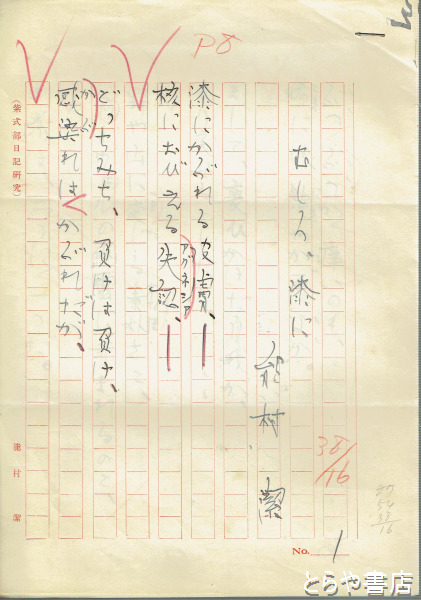 P8
むしろ漆に
龍村 潔
漆にかぶれる皮膚、
核におびえる失認、
アグネシア
どっちみち、負けは負け、
感染れば かぶれたか、
38/16
No. 1
(紫式部日記研究)
龍村 潔
とらや書店